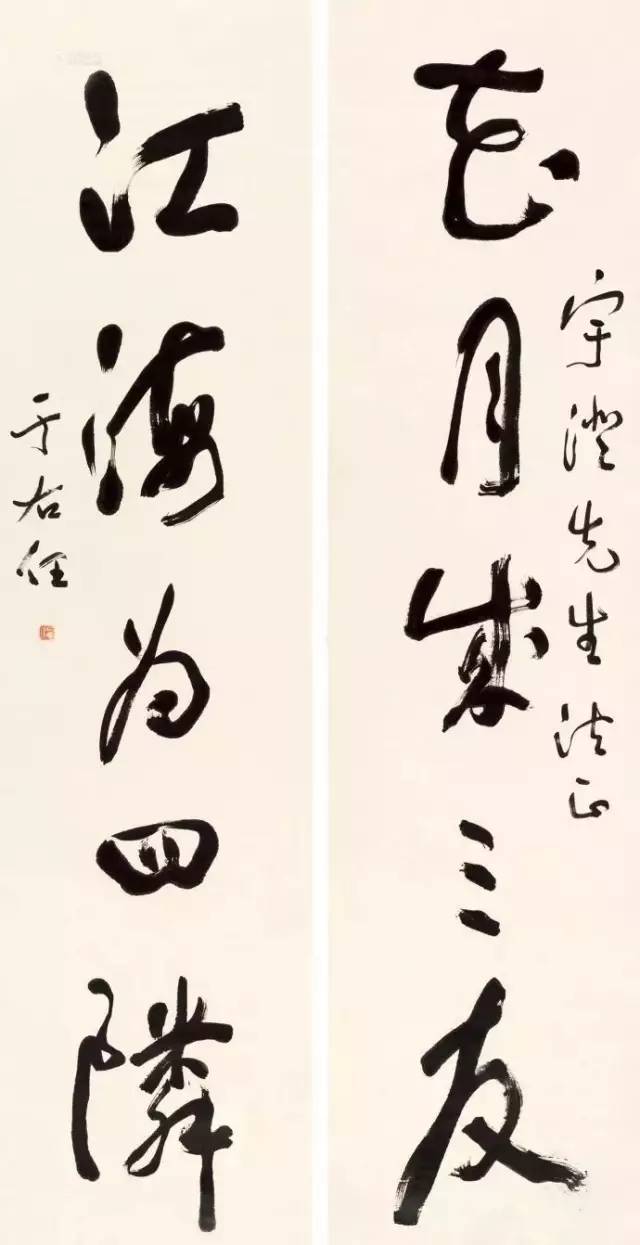 宇澄先生法正
花月成三友
江海為四隣
于右任